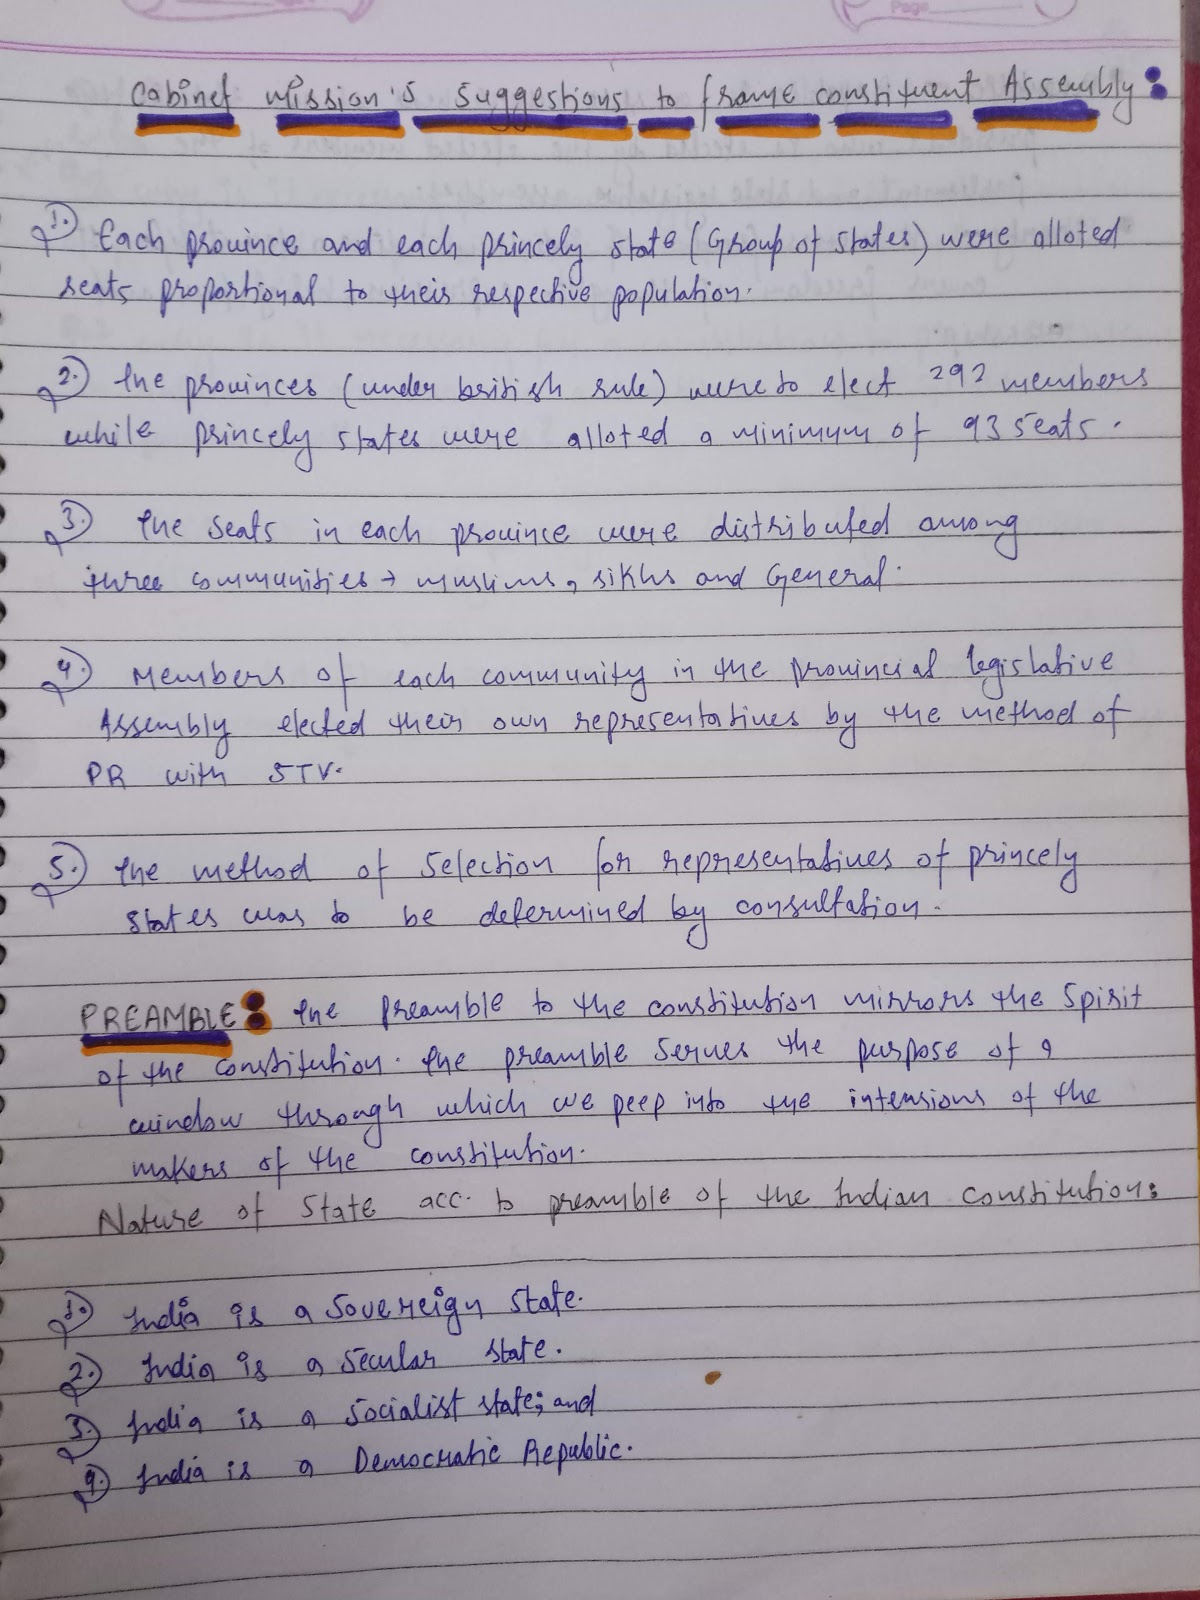 Page
Cabinet Mission's Suggestions to frame constituent Assembly:
1. Each province and each princely state (Group of states) were alloted
seats proportional to their respective population.
2. The provinces (under british rule) were to elect 292 members
while princely states were alloted a minimum of 93 seats.
3. The seats in each province were distributed among
three communities → muslims, sikhs and General.
4. Members of each community in the provincial legislative
Assembly elected their own representatives by the method of
PR with STV.
5. The method of selection for representatives of princely
states was to be determined by consultation.
PREAMBLE: The preamble to the constitution mirrors the spirit
of the constitution. The preamble serves the purpose of a
window through which we peep into the intensions of the
makers of the constitution.
Nature of State acc. to preamble of the Indian constitution:
1. India is a sovereign state.
2. India is a secular state.
3. India is a socialist state; and
4. India is a Democratic Republic.